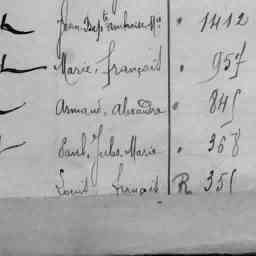 Jean Bapte Ambroise Mie " 1412
Marie, François " 957
Armand, Alexandre " 845
Paul, Jules, Marie " 368
Louis François R 351